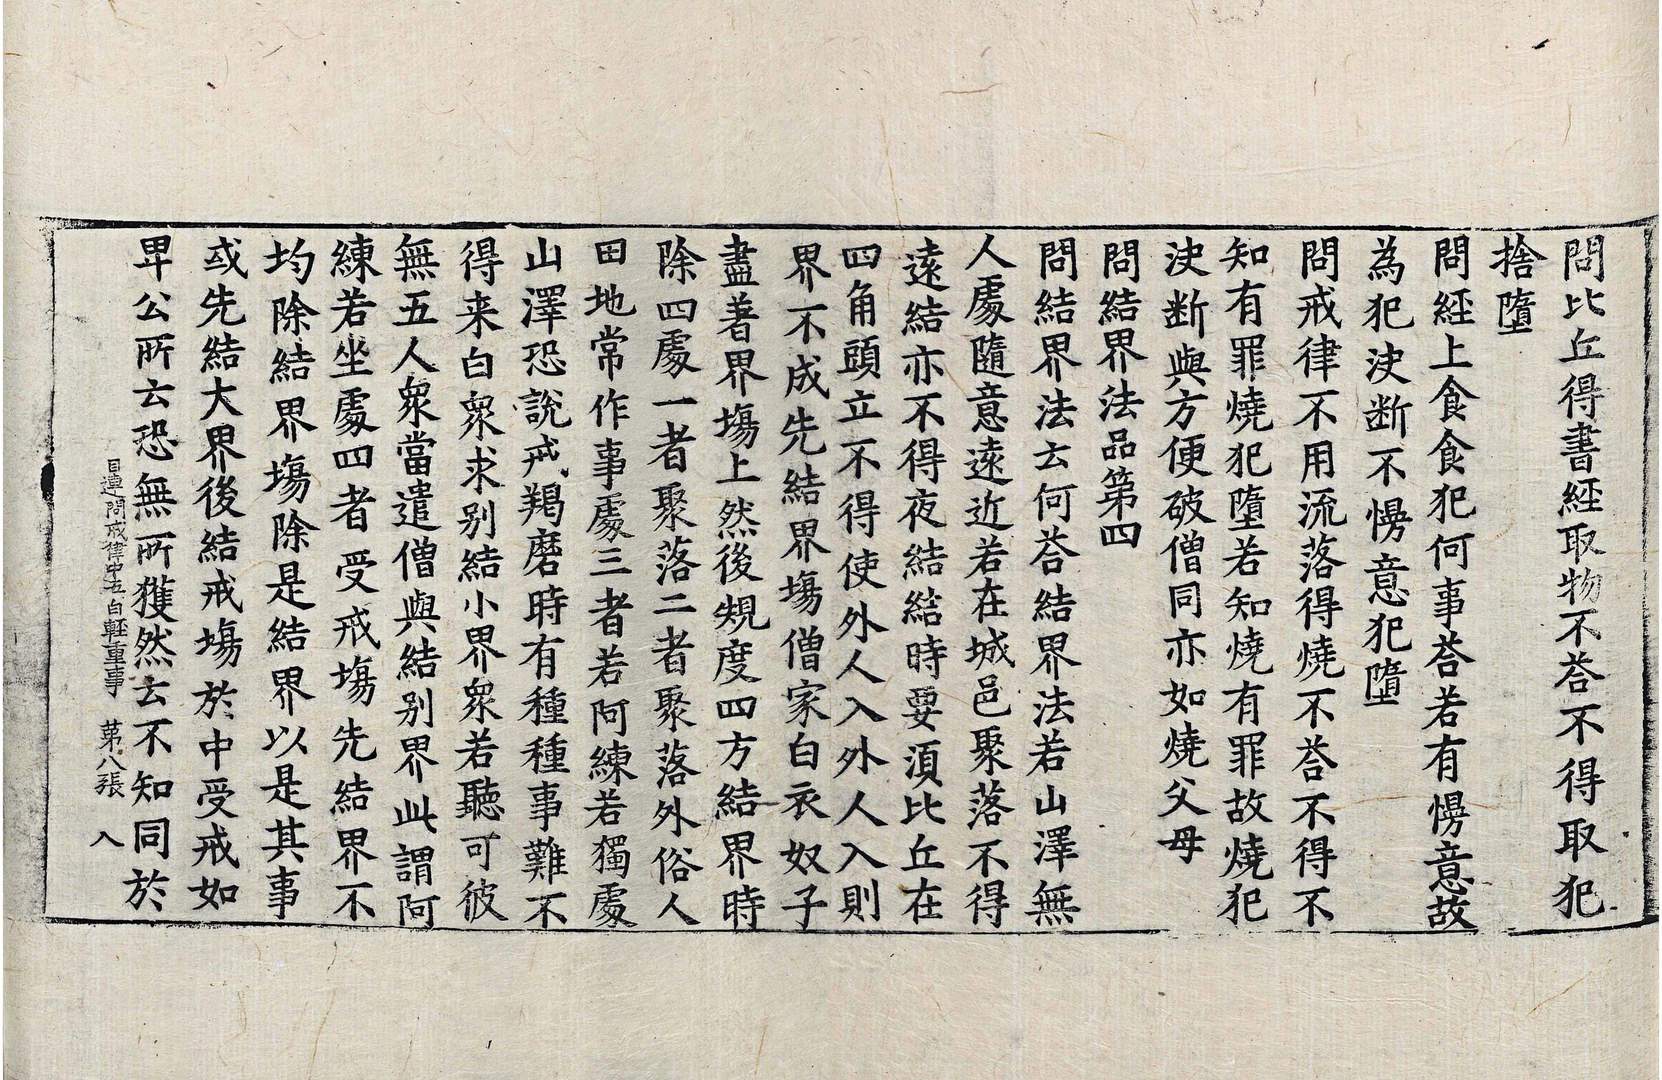 問比丘得書経取物不荅不得取犯
捨墮
問経上食食犯何事荅若有㦬意故
為犯决断不㦬意犯墮
問戒律不用流落得燒不荅不得不
知有罪燒犯墮若知燒有罪故燒犯
决断與方便破僧同亦如燒父母
問結界法品第四
問結界法云何荅結界法若山澤無
人處隨意遠近若在城邑聚落不得
遠結亦不得夜結結時要須比丘在
四角頭立不得使外人入外人入則
界不成先結界塲僧家白衣奴子
盡著界塲上然後規度四方結界時
除四處一者聚落二者聚落外俗人
田地常作事處三者若阿練若獨處
山澤恐說戒羯磨時有種種事難不
得来白衆求别結小界衆若聽可彼
無五人衆當遣僧與結别界此謂阿
練若坐處四者受戒塲先結界不
均除結界塲除是結界以是其事
或先結大界後結戒塲於中受戒如
卑公所云恐無所獲然云不知同於
目連問戒律中五百輕重事 第八張 入